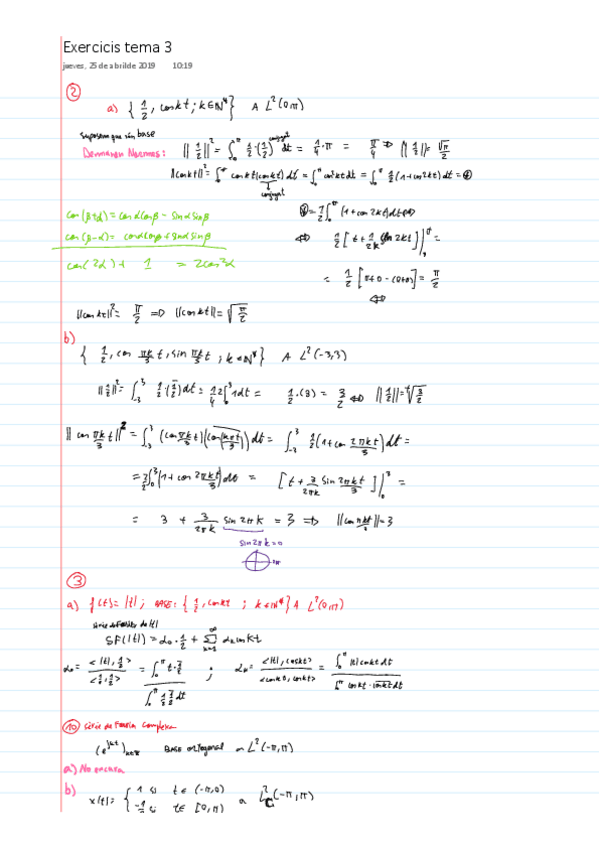 Exercicis tema 3
jueves, 25 de abril de 2019 10:19
②
a) { 1/2, cos kt ; k ∈ N* } A L²(0,π)
suposem que són base
Demanen Normes: ||1/2||² = ∫₀^π 1/2·(1/2) dt = 1/4·π = π/4 ⇒ ||1/2|| = √π/2
conjugat
||cos kt||² = ∫₀^π cos kt (cos kt) dt = ∫₀^π cos² kt dt = ∫₀^π 1/2 (1+cos 2kt) dt = ⊛
conjugat
cos(β+α) = cosα cosβ − sinα sinβ
cos(β−α) = cosα cosβ + sinα sinβ
cos(2α) + 1 = 2cos²α
⊛ = 1/2 ∫₀^π (1+cos 2kt) dt
⇔ 1/2 [ t + 1/2k sin 2kt ]₀^π =
= 1/2 [π+0−(0+0)] = π/2
||cos kt||² = π/2 ⇒ ||cos kt|| = √π/2
b)
{ 1/2, cos πk/3 t, sin πk/3 t ; k ∈ N* } A L²(-3,3)
||1/2||² = ∫₋₃³ 1/2·(1/2) dt =
||cos πk/3 t||² = ∫₋₃³ (cos πk/3 t) (cos πkt/3) dt = ∫₋₃³ 1/2 (1+cos 2πkt/3) dt =
(1+cos 2πkt/3) dt = [ t + 3/2πk sin 2πkt/3 ]₀³ =
= 3 + 3/2πk sin 2πk = 3 ⇒
sin 2πk = 0
③
a) f(t) = |t| ; BASE: { 1/2, cos kt ; k ∈ N* } A L²(0,π)
Sèrie de Fourier de |t|
SF(|t|) = α₀·1/2 + Σ αₖ cos kt
α₀ = <|t|, 1/2> / <1/2, 1/2> = ; αₖ = <|t|, cos kt> / <cos kt, cos kt> = ∫₀^π |t| cos kt dt / ∫₀^π cos kt · cos kt dt
⑩ Sèrie de Fourier Complexa
BASE ortogonal L²(-π,π)
a) No encara
b)
x(t) = { 1 si t ∈ (-π,0)
t ∈ [0,π) a L²(-π,π)